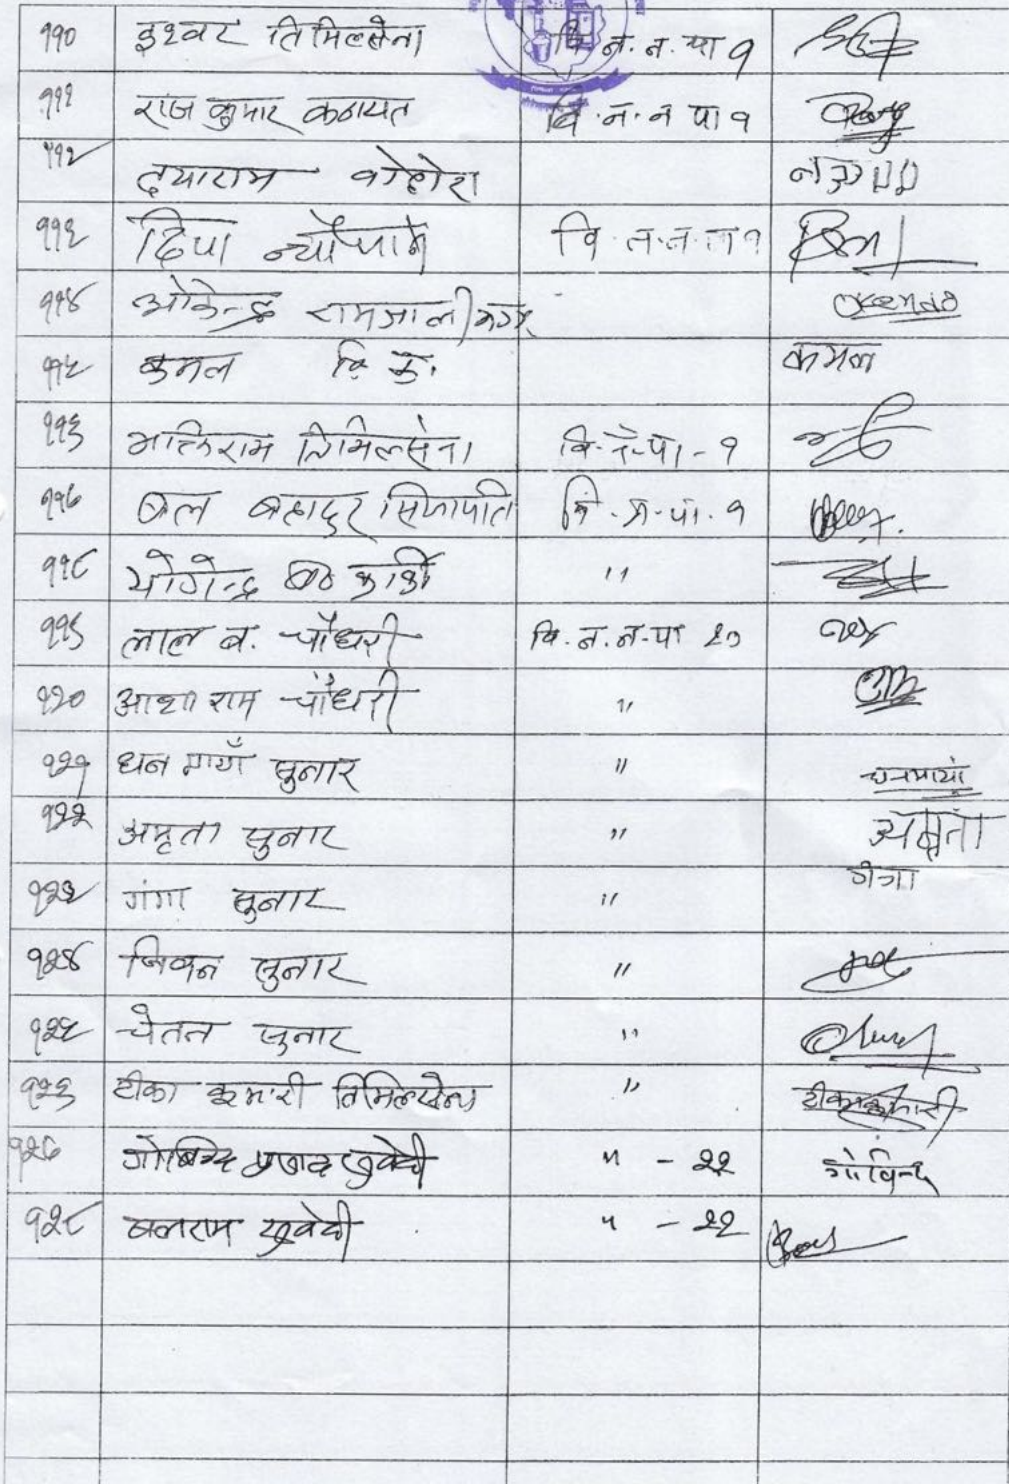 ११० इश्वर तिमिल्सेना वि. न. न. पा १
१११ राज कुमार कठायत बि. न. न पा १
११२ दयाराम बोहोरा
११३ दिपा न्यौपाने वि. न. न. पा १
११४ ओकेन्द्र रामजाली मगर Okendo
११५ कमल वि. क. कमल
११६ भक्तिराम तिमिल्सेना वि. न. पा - १
११७ बल बहादुर सिजापति वि. न. पा. १
११८ योगेन्द्र कार्की "
११९ लाल ब. चौधरी वि. न. न. पा १०
१२० आशा राम चौधरी "
१२१ धन मायाँ सुनार " धनमायाँ
१२२ अमृता सुनार " अमृता
१२३ गंगा सुनार " गंगा
१२४ जिवन सुनार "
१२५ चेतन सुनार "
१२६ टीका कुमारी तिमिल्सेना " टीका कुमारी
१२७ गोबिन्द प्रसाद सुवेदी " - ११ गोविन्द
१२८ बलराम सुवेदी " - ११